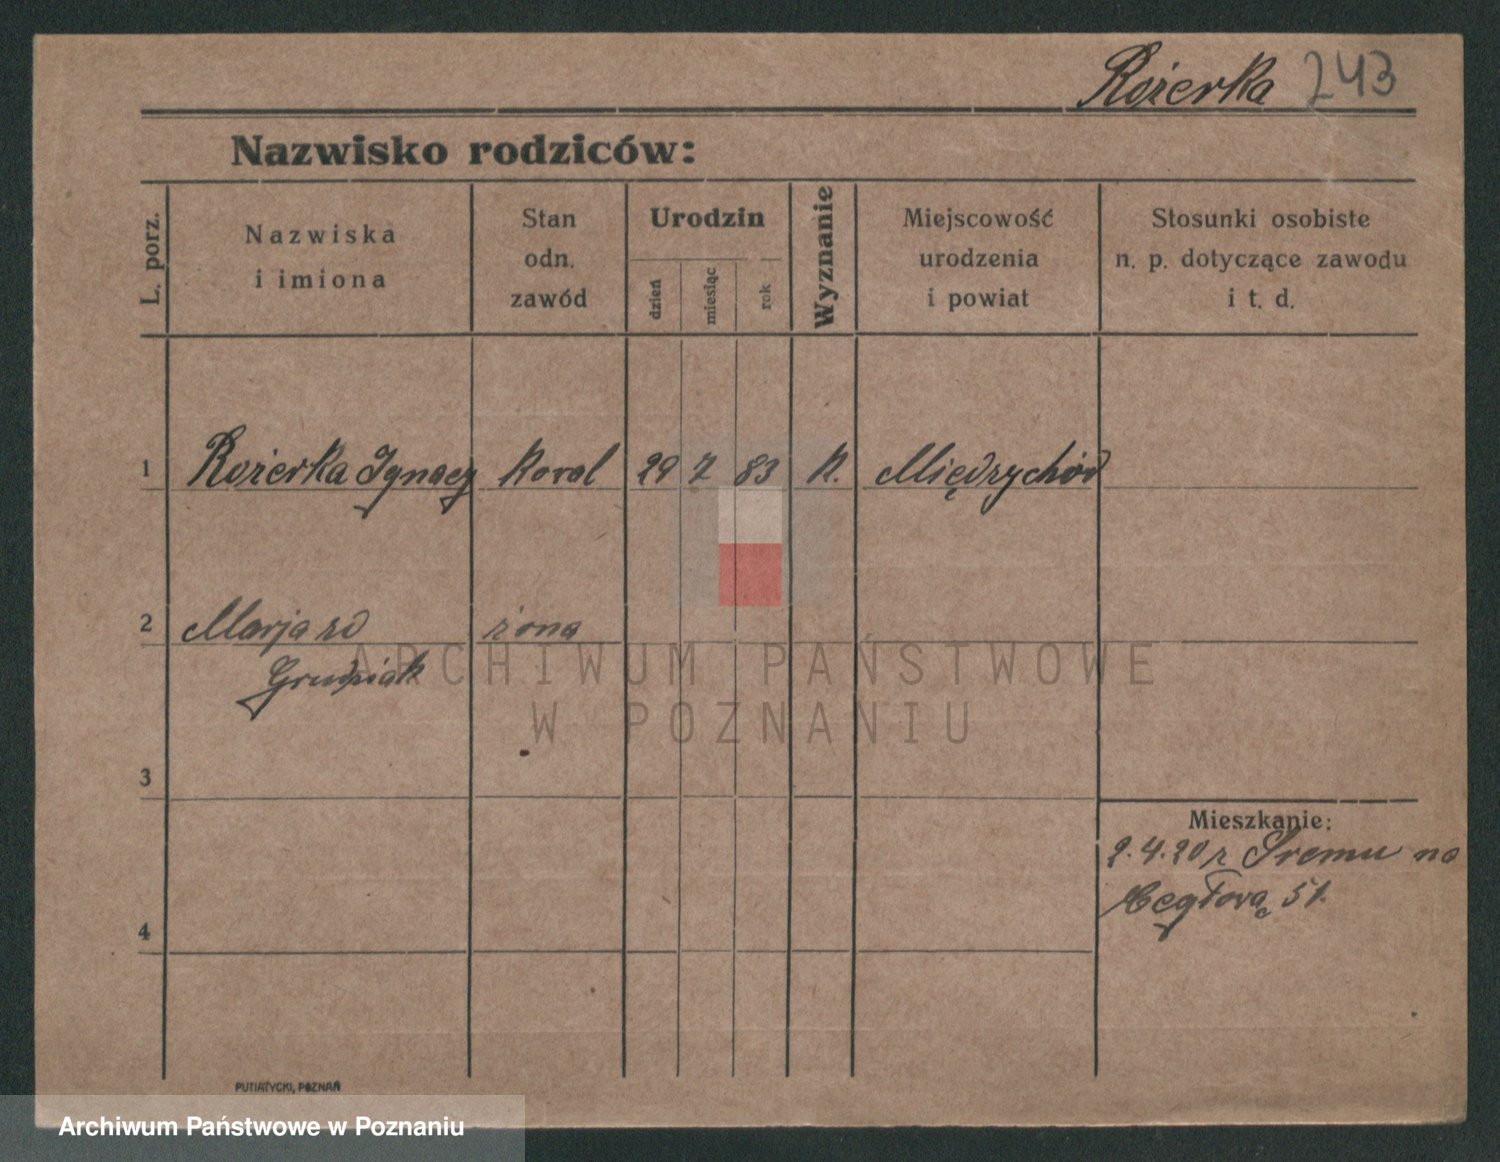 Rożerka 243
Nazwisko rodziców:
L. porz.
Nazwiska
i imiona
Stan
odn.
zawód
Urodzin
dzień
miesiąc
rok
Wyznanie
Miejscowość
urodzenia
i powiat
Stosunki osobiste
n. p. dotyczące zawodu
i t. d.
1 Rożerka Ignacy Koval 29 7 83 K. Międzychód
2 Marja zd żona
ARCHIWUM PAŃSTWOWE
W POZNANIU
3
Mieszkanie:
2.4.20 z Śremu na
Cegłową 51.
4
PUTIATYCKI, POZNAŃ
Archiwum Państwowe w Poznaniu